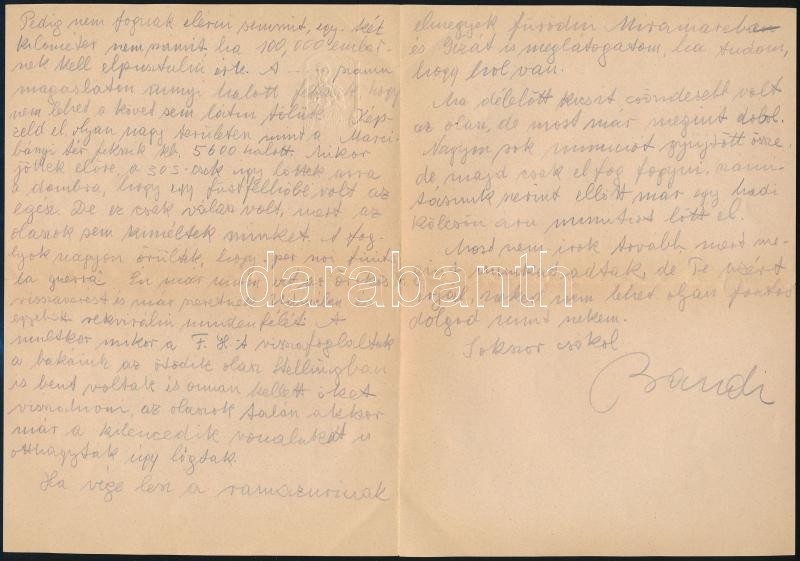 Pedig nem fognak elérni semmit, egy-két
kilométer nem számit ha 100,000 ember-
nek kell elpusztulni érte. A számu
magaslaton annyi halott feküdt hogy
nem lehet a követ sem látni tőlük. Kép-
zeld el, olyan nagy területen mint a Marci-
bányi tér feküdt kb. 5600 halott. Mikor
jöttek előre, a 305-ösök ugy lőttek arra
a dombra, hogy egy füstfelhőbe volt az
egész. De ez csak válasz volt, mert az
olaszok sem kiméltek minket. A fog-
lyok nagyon örültek, hogy per noi finit-
ta guerra. Én már unom
visszaverést és már szeretnék
egyebütt rekvirálni mindenfélét. A
multkor mikor a F. H-t visszafoglaltuk
a bakáink az ötödik olasz Stellingban
is bent voltak és onnan kellett őket
visszahivni, az olaszok talán akkor
már a kilencedik vonalukat is
otthagyták úgy lógtak.
Ha vége lesz a ramazurinak
elmegyek fürödni Miramareba
és Gizát is meglátogatom, ha tudom,
hogy hol van.
Ma délelőtt kicsit csöndesebb volt
az olasz, de most már megint dobol.
Nagyon sok municiót gyüjtött össze
de majd csak el fog fogyni, szami-
tásunk szerint ellőtt már egy hadi
kölcsön áru municiót lőtt el.
Most nem irok tovább, mert me-
gint munkát adtak, de Te azért
irjál nekem nem lehet olyan fontos
dolgod mint nekem.
Sokszor csókol
Bandi
darabanth